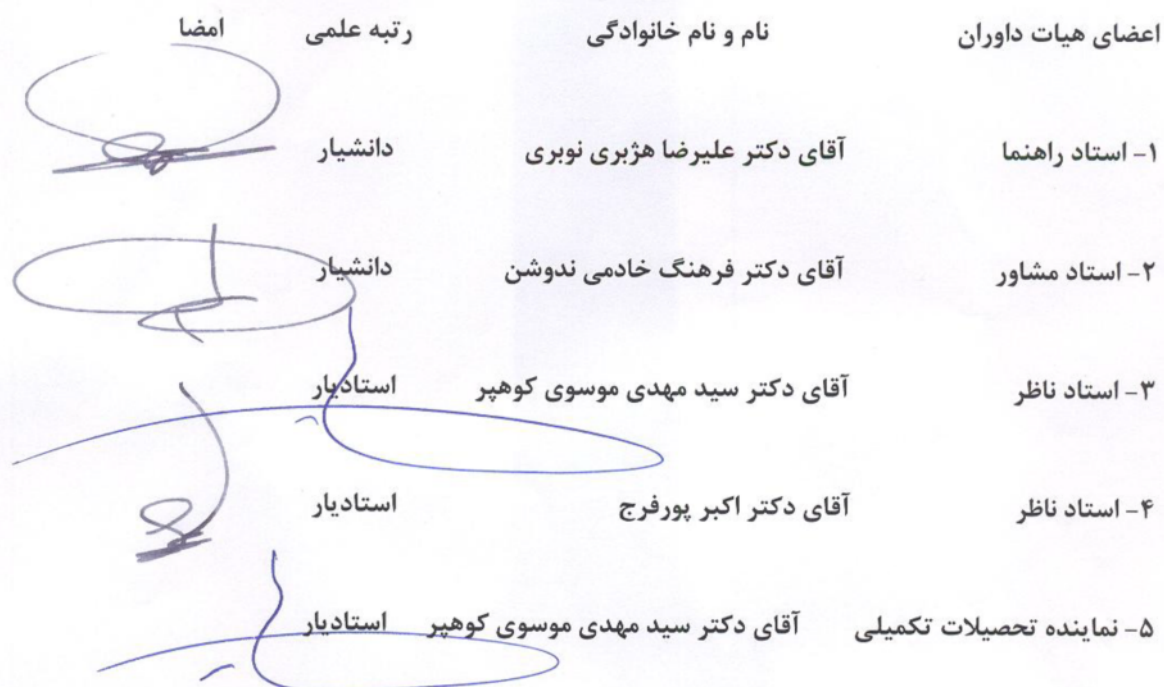 اعضای هیات داوران نام و نام خانوادگی رتبه علمی امضا
۱- استاد راهنما آقای دکتر علیرضا هژبری نوبری دانشیار
۲- استاد مشاور آقای دکتر فرهنگ خادمی ندوشن دانشیار
۳- استاد ناظر آقای دکتر سید مهدی موسوی کوهپر استادیار
۴- استاد ناظر آقای دکتر اکبر پورفرج استادیار
۵- نماینده تحصیلات تکمیلی آقای دکتر سید مهدی موسوی کوهپر استادیار